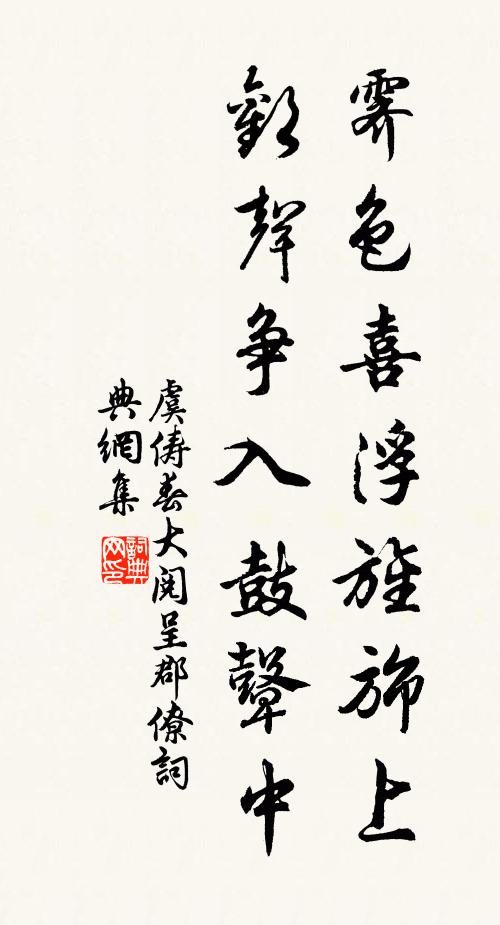 霽色喜浮旌旆上
歡聲爭入鼓鼙中
虞儔春大閱呈郡僚詞
典網集
詞典網印